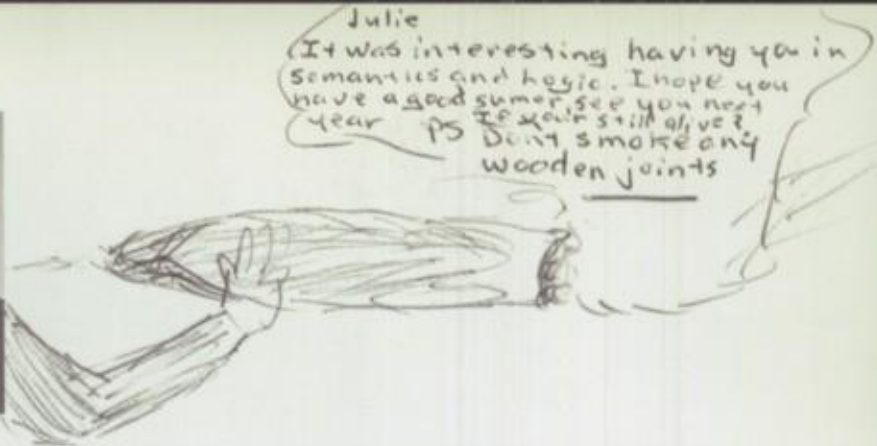 Julie
It was interesting having you in
semantics and Logic. I hope you
have a good sumer, see you next
year If your still alive?
PS Dont smoke any
wooden joints